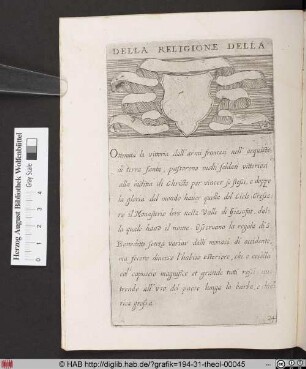 DELLA RELIGIONE DELLA
Ottenuta la vittoria dall'armi francesi nell'acquisto
di terra santa, passorono molti soldati vittoriosi
alla militia di Christo per vincer se stessi, e doppo
la gloria del mondo haver quella del Cielo
il Monasterio loro nella Valle di Giosafat, dal
la quale hanno il nome. Osservano la regola di S.
Benedetto senza variar dalli monaci di occidente,
ma fecero diverso l'habito esteriore, che è cocolla
col capuccio
all'uso del paese longa la barba, e
grossa.
34
Herzog August Bibliothek Wolfenbüttel
Gray Scale
© HAB http://diglib.hab.de/?grafik=194-31-theol-00045